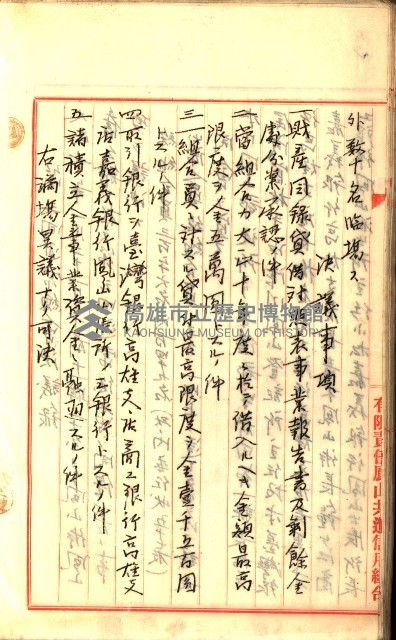 外数十名臨場ス
決議事項
一財産目録貸借対照表事業報告書及剰餘金
處分案承認ノ件
二當組合カ大正十年度ニ於テ借入ルヘキ金額最高
限度ヲ金五萬圓トスル件
三組合員ニ対スル貸付最高限度ヲ金壹千五百圓
トスル件
四取引銀行ヲ臺灣銀行高雄支店商工銀行高雄支
店嘉義銀行鳳山出張所ノ三銀行トスル件
五諸積立金事業資金ニ融通スル件
右満場異議ナク可決
有限責任鳳山共通信用組合
高雄市立歷史博物館
KAOHSIUNG MUSEUM OF HISTORY